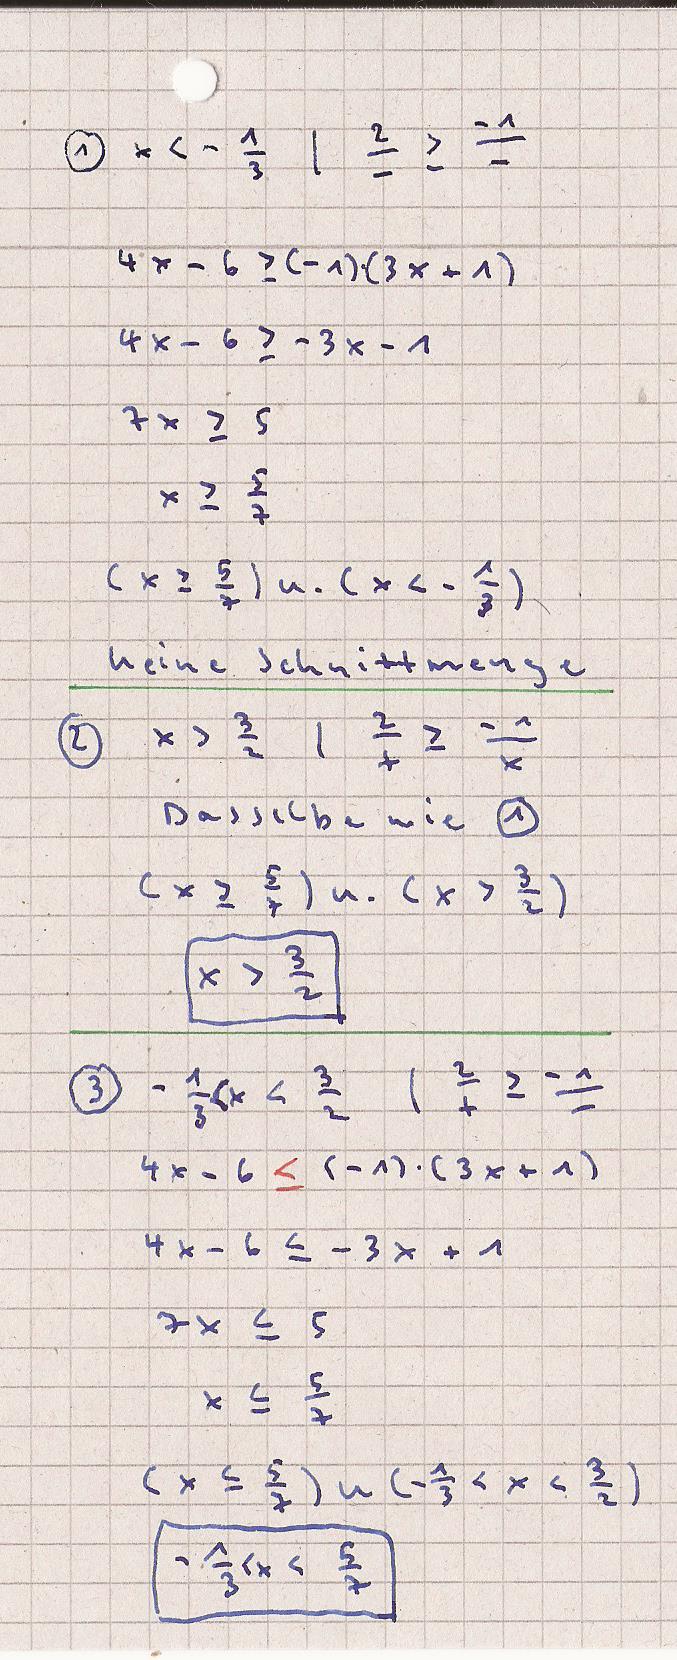 ① x < - 1/3 | 2/- ≥ -1/-
4x - 6 ≥ (-1)·(3x + 1)
4x - 6 ≥ -3x - 1
7x ≥ 5
x ≥ 5/7
(x ≥ 5/7) u. (x < - 1/3)
keine Schnittmenge
② x > 3/2 | 2/+ ≥ -1/x
Dasselbe wie ①
(x ≥ 5/7) u. (x > 3/2)
x > 3/2
③ - 1/3 < x < 3/2 | 2/+ ≥ -1/-
4x - 6 ≤ (-1)·(3x + 1)
4x - 6 ≤ -3x + 1
7x ≤ 5
x ≤ 5/7
(x ≤ 5/7) u (-1/3 < x < 3/2)
- 1/3 < x < 5/7